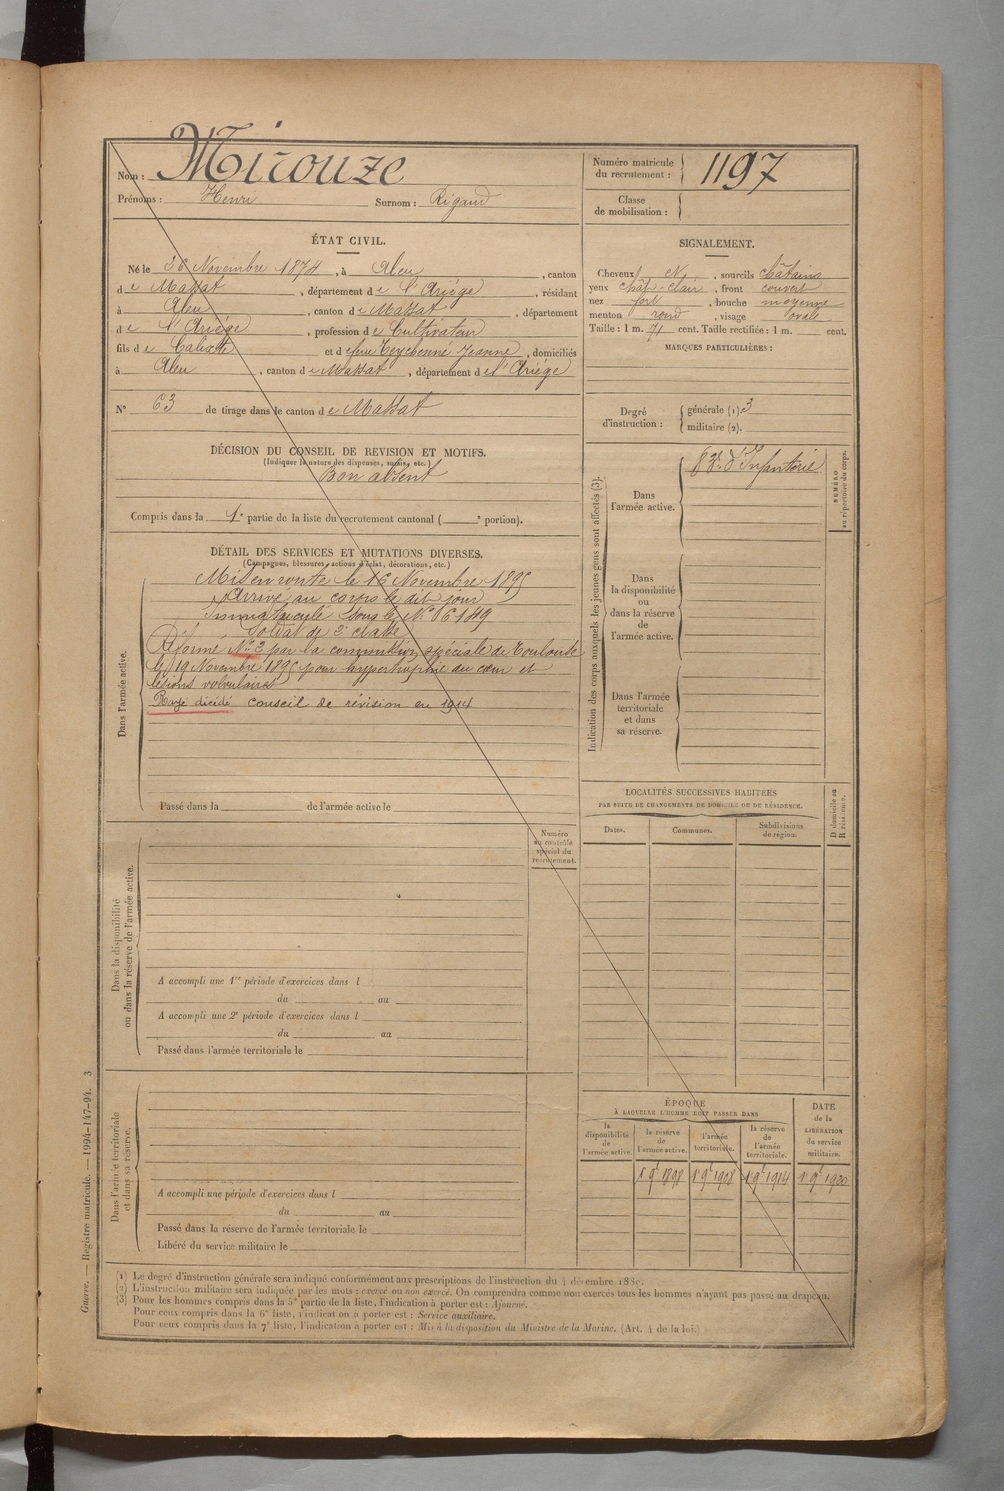 Nom : Mirouze
Prénoms : Henri Surnom : Rigaud
Numéro matricule du recrutement : 1197
Classe de mobilisation :
ÉTAT CIVIL.
Né le 26 Novembre 1874, à Aleu, canton
de Massat, département de l'Ariége, résidant
à Aleu, canton de Massat, département
de l'Ariége, profession de Cultivateur
fils de Calixte et de feue Teychenné Jeanne, domiciliés
à Aleu, canton de Massat, département de l'Ariége
N° 63 de tirage dans le canton de Massat
SIGNALEMENT.
Cheveux N, sourcils châtains
yeux chât-clair, front couvert
nez fort, bouche moyenne
menton rond, visage ovale
Taille : 1 m. 71 cent. Taille rectifiée : 1 m. cent.
MARQUES PARTICULIÈRES :
Degré d'instruction : générale (1) 3
militaire (2).
DÉCISION DU CONSEIL DE REVISION ET MOTIFS.
(Indiquer la nature des dispenses, sursis, etc.)
Bon absent
Compris dans la 1e partie de la liste du recrutement cantonal ( e portion).
DÉTAIL DES SERVICES ET MUTATIONS DIVERSES.
(Campagnes, blessures, actions d'éclat, décorations, etc.)
Dans l'armée active.
Mis en route le 16 Novembre 1895
Arrivé au corps le dit jour
Immatriculé sous le N° 6149
Soldat de 2e classe
Réformé N° 2 par la commission spéciale de Toulouse
le 19 Novembre 1895 pour hypertrophie du cœur et
lésions valvulaires
Rayé décédé conseil de révision en 1914
Passé dans la de l'armée active le
Indication des corps auxquels les jeunes gens sont affectés (3).
Dans l'armée active. 83e d'Infanterie
Dans la disponibilité ou dans la réserve de l'armée active.
Dans l'armée territoriale et dans sa réserve.
NUMÉRO au répertoire du corps.
LOCALITÉS SUCCESSIVES HABITÉES
PAR SUITE DE CHANGEMENTS DE DOMICILE OU DE RÉSIDENCE.
Dates. Communes. Subdivisions de région. D domicile ou R résidence.
Dans la disponibilité ou dans la réserve de l'armée active.
Numéro au contrôle spécial du recrutement.
A accompli une 1re période d'exercices dans l
du au
A accompli une 2e période d'exercices dans l
du au
Passé dans l'armée territoriale le
Dans l'armée territoriale et dans sa réserve.
A accompli une période d'exercices dans l
du au
Passé dans la réserve de l'armée territoriale le
Libéré du service militaire le
ÉPOQUE
À LAQUELLE L'HOMME DOIT PASSER DANS
la disponibilité de l'armée active. la réserve de l'armée active. l'armée territoriale. la réserve de l'armée territoriale. DATE de la LIBÉRATION du service militaire.
1er 9bre 1898 1er 9bre 1908 1er 9bre 1914 1er 9bre 1920
(1) Le degré d'instruction générale sera indiqué conformément aux prescriptions de l'instruction du 4 décembre 1889.
(2) L'instruction militaire sera indiquée par les mots : exercé ou non exercé. On comprendra comme non exercés tous les hommes n'ayant pas passé au drapeau.
(3) Pour les hommes compris dans la 5e partie de la liste, l'indication à porter est : Ajourné.
Pour ceux compris dans la 6e liste, l'indication à porter est : Service auxiliaire.
Pour ceux compris dans la 7e liste, l'indication à porter est : Mis à la disposition du Ministre de la Marine. (Art. 4 de la loi.)
Guerre. — Registre matricule. — 1994-147-94. 3